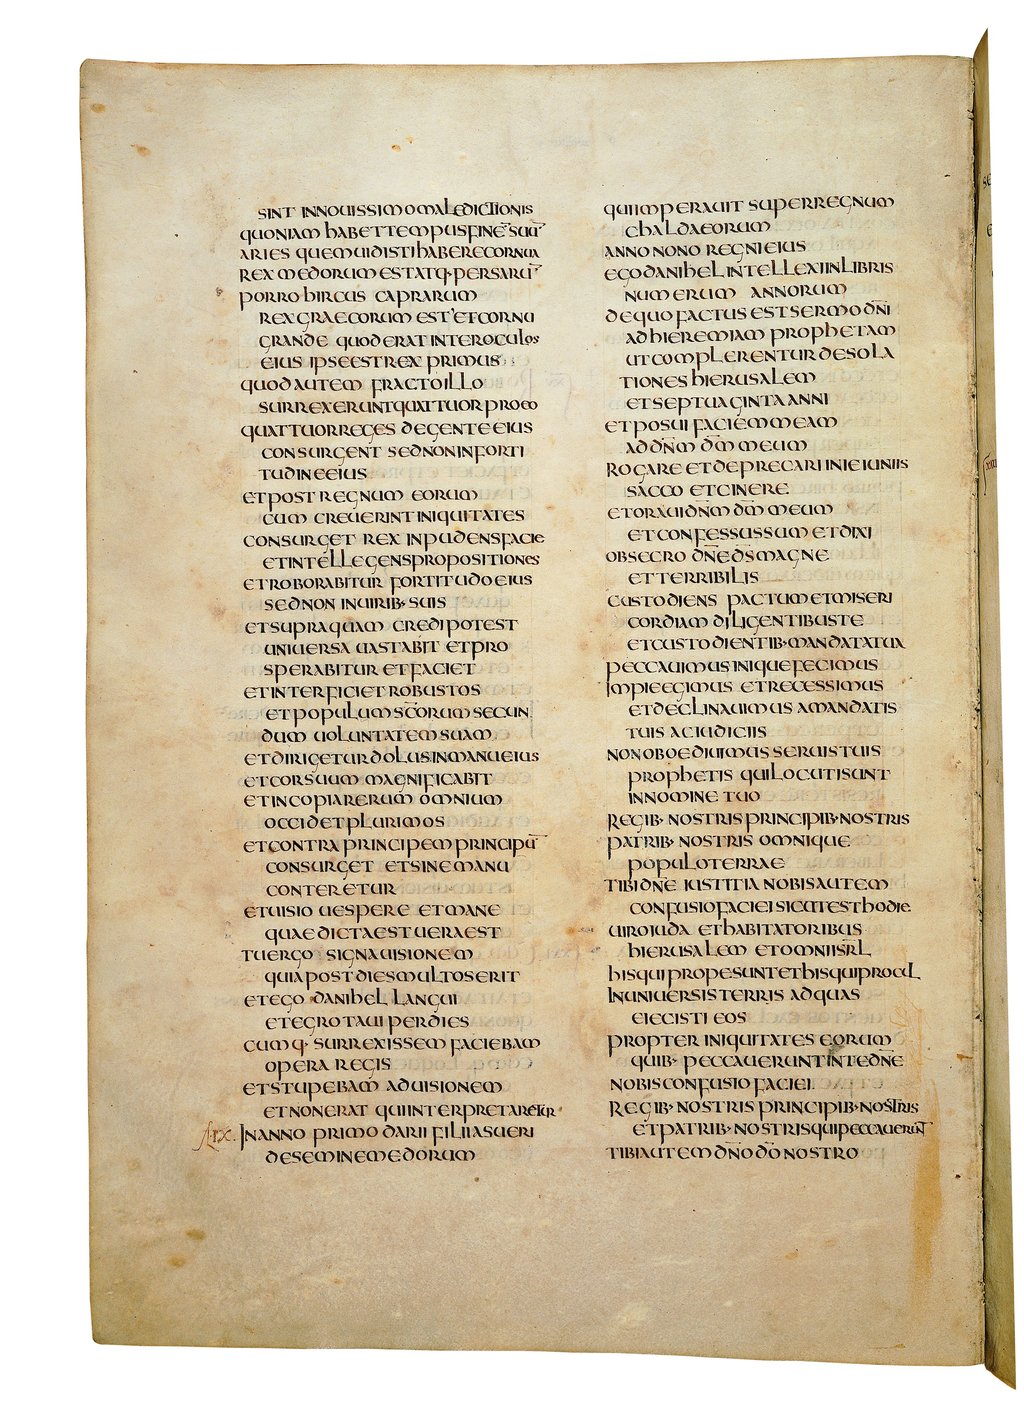 SINT INNOUISSIMO MALEDICTIONIS
QUONIAM HABET TEMPUS FINĒ SUŪ
ARIES QUEM UIDISTI HABERE CORNUA
REX MEDORUM EST ATQ· PERSARŪ
PORRO HIRCUS CAPRARUM
REX GRAECORUM EST ET CORNU
GRANDE QUOD ERAT INTER OCULOS
EIUS IPSE EST REX PRIMUS
QUOD AUTEM FRACTO ILLO
SURREXERUNT QUATTUOR PRO EO
QUATTUOR REGES DE GENTE EIUS
CONSURGENT SED NON IN FORTI
TUDINE EIUS
ET POST REGNUM EORUM
CUM CREUERINT INIQUITATES
CONSURGET REX INPUDENS FACIE
ET INTELLEGENS PROPOSITIONES
ET ROBORABITUR FORTITUDO EIUS
SED NON IN UIRIB· SUIS
ET SUPRA QUAM CREDI POTEST
UNIUERSA UASTABIT ET PRO
SPERABITUR ET FACIET
ET INTERFICIET ROBUSTOS
ET POPULUM SC̄ORUM SECUN
DUM UOLUNTATEM SUAM
ET DIRIGETUR DOLUS IN MANU EIUS
ET COR SUUM MAGNIFICABIT
ET IN COPIA RERUM OMNIUM
OCCIDET PLURIMOS
ET CONTRA PRINCIPEM PRINCIPŪ
CONSURGET ET SINE MANU
CONTERETUR
ET UISIO UESPERE ET MANE
QUAE DICTA EST UERA EST
TU ERGO SIGNA UISIONEM
QUIA POST DIES MULTOS ERIT
ET EGO DANIHEL LANGUI
ET EGROTAUI PER DIES
CUMQ· SURREXISSEM FACIEBAM
OPERA REGIS
ET STUPEBAM AD UISIONEM
ET NON ERAT QUI INTERPRETARETUR
IN ANNO PRIMO DARII FILII ASUERI
DE SEMINE MEDORUM
QUI IMPERAUIT SUPER REGNUM
CHALDAEORUM
ANNO NONO REGNI EIUS
EGO DANIHEL INTELLEXI IN LIBRIS
NUMERUM ANNORUM
DE QUO FACTUS EST SERMO DN̄I
AD HIEREMIAM PROPHETAM
UT COMPLERENTUR DESOLA
TIONES HIERUSALEM
ET SEPTUAGINTA ANNI
ET POSUI FACIEM MEAM
AD DN̄M DM̄ MEUM
ROGARE ET DEPRECARI IN IEIUNIIS
SACCO ET CINERE
ET ORAUI DN̄M DM̄ MEUM
ET CONFESSUS SUM ET DIXI
OBSECRO DN̄E DS̄ MAGNE
ET TERRIBILIS
CUSTODIENS PACTUM ET MISERI
CORDIAM DILIGENTIBUS TE
ET CUSTODIENTIB· MANDATA TUA
PECCAUIMUS INIQUE FECIMUS
IMPIE EGIMUS ET RECESSIMUS
ET DECLINAUIMUS A MANDATIS
TUIS AC IUDICIIS
NON OBOEDIUIMUS SERUIS TUIS
PROPHETIS QUI LOCUTI SUNT
IN NOMINE TUO
REGIB· NOSTRIS PRINCIPIB· NOSTRIS
PATRIB· NOSTRIS OMNIQUE
POPULO TERRAE
TIBI DN̄E IUSTITIA NOBIS AUTEM
CONFUSIO FACIEI SICUT EST HODIE
UIRO IUDA ET HABITATORIBUS
HIERUSALEM ET OMNI ISRL̄
HIS QUI PROPE SUNT ET HIS QUI PROCUL
IN UNIUERSIS TERRIS AD QUAS
EIECISTI EOS
PROPTER INIQUITATES EORUM
QUIB· PECCAUERUNT IN TE DN̄E
NOBIS CONFUSIO FACIEI
REGIB· NOSTRIS PRINCIPIB· NOSTRIS
ET PATRIB· NOSTRIS QUI PECCAUERUNT
TIBI AUTEM DN̄O DŌ NOSTRO